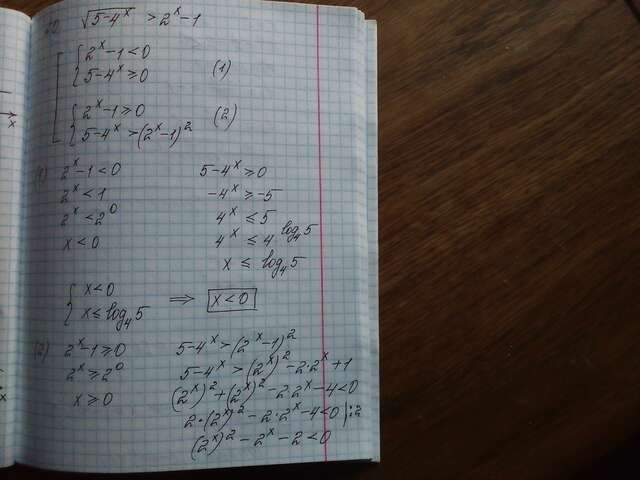 √5-4ˣ > 2ˣ-1
2ˣ-1<0
5-4ˣ≥0 (1)
2ˣ-1≥0 (2)
5-4ˣ>(2ˣ-1)²
(1) 2ˣ-1<0 5-4ˣ≥0
2ˣ<1 -4ˣ≥-5
2ˣ<2⁰ 4ˣ≤5
x<0 4ˣ≤4^log₄5
x≤log₄5
x<0
x≤log₄5 ⟹ x<0
(2) 2ˣ-1≥0 5-4ˣ>(2ˣ-1)²
2ˣ≥2⁰ 5-4ˣ>(2ˣ)²-2·2ˣ+1
x≥0 (2ˣ)²+(2ˣ)²-2·2ˣ-4<0
2·(2ˣ)²-2·2ˣ-4<0 |:2
(2ˣ)²-2ˣ-2<0
x